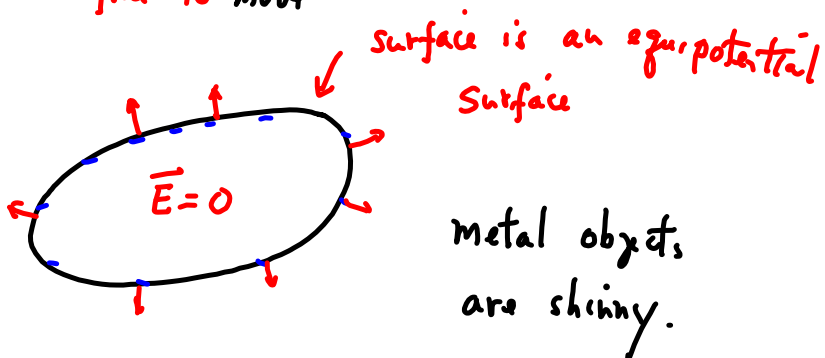 to move
surface is an equipotential
surface
E = 0
metal objects
are shinny.